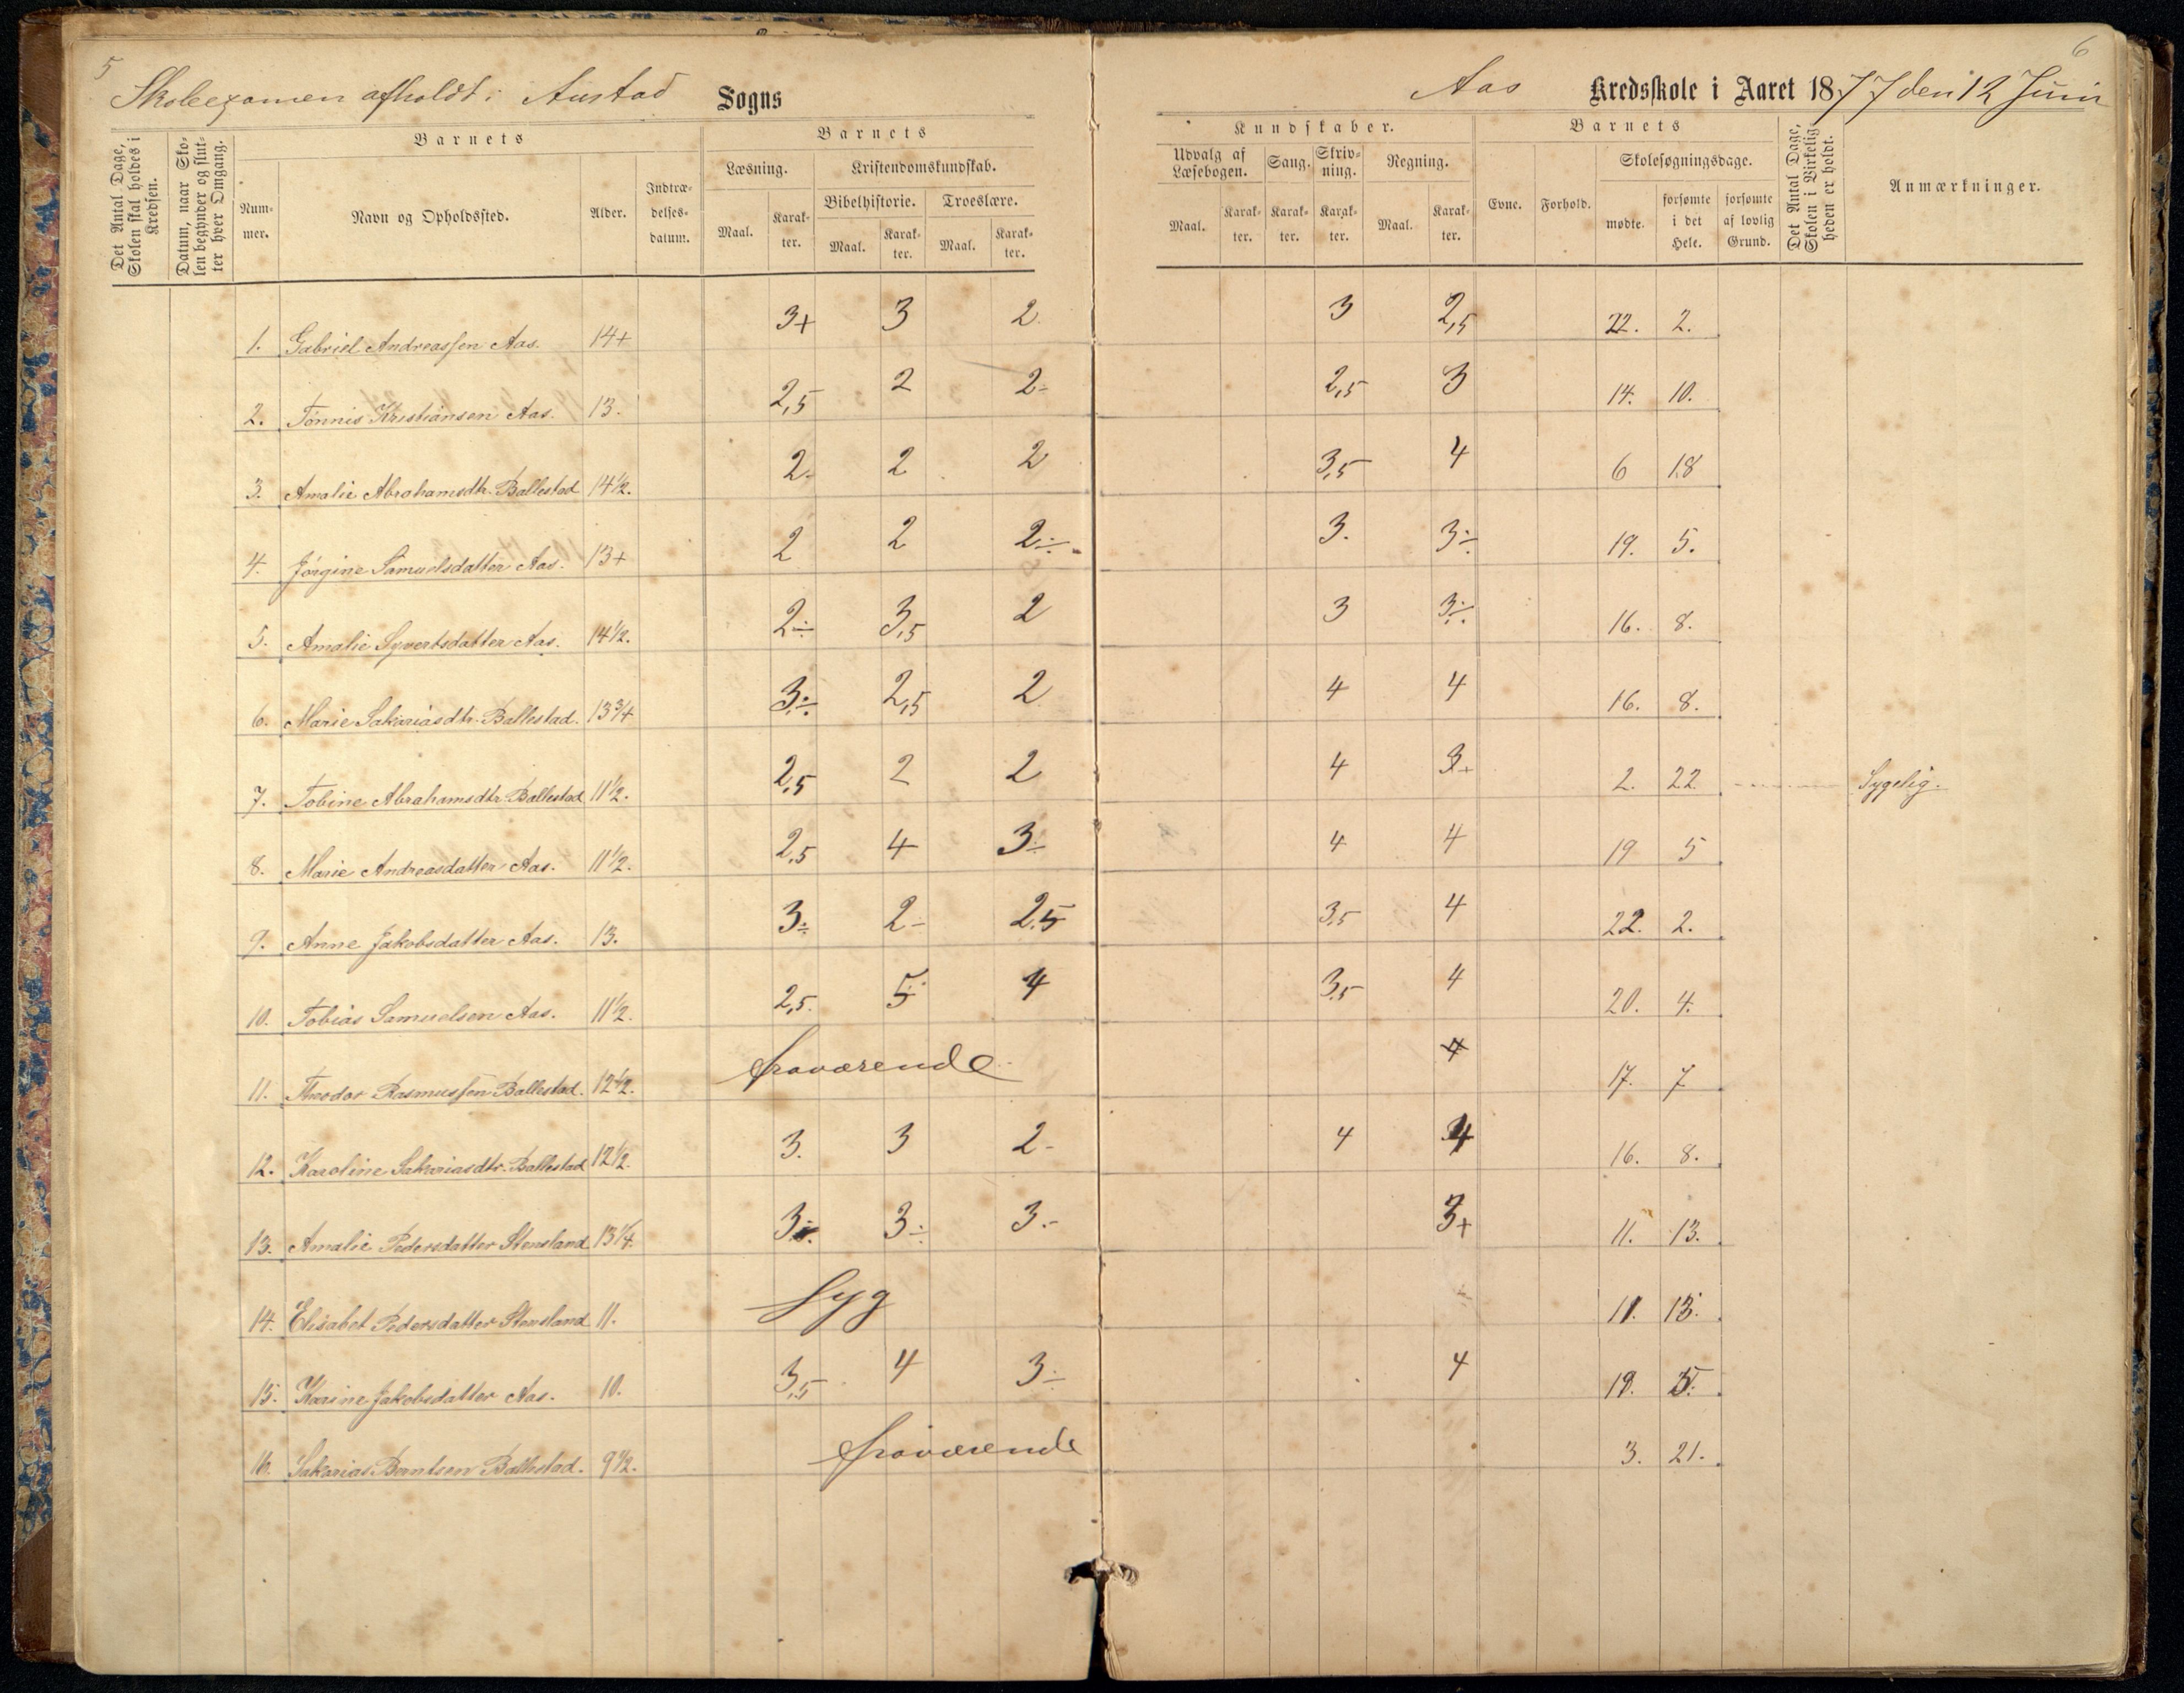 5
6
Skoleexamen afholdt i Austad Sogns
Aas Kredsskole i Aaret 1877 den 12 Juni
Det Antal Dage, Skolen skal holdes i Kredsen.
Datum, naar Skolen begynder og slutter hver Omgang.
Barnets
Barnets
Kundskaber.
Barnets
Det Antal Dage, Skolen i Virkeligheden er holdt.
Anmærkninger.
Nummer.
Navn og Opholdssted.
Alder.
Indtrædelsesdatum.
Læsning.
Kristendomskundskab.
Udvalg af Læsebogen.
Sang.
Skrivning.
Regning.
Evne.
Forhold.
Skolesøgningsdage.
Bibelhistorie.
Troeslære.
Maal. Karakter. Maal. Karakter. Maal. Karakter.
Maal. Karakter. Karakter. Karakter. Maal. Karakter.
mødte. forsømte i det Hele. forsømte af lovlig Grund.
1. Gabriel Andreassen Aas. 14+ 3+ 3 2 3 2,5 22. 2.
2. Tønnis Kristiansen Aas. 13. 2,5 2 2- 2,5 3 14. 10.
3. Amalie Abrahamsdtr. Ballestad 14½. 2. 2 2 3,5 4 6 18
4. Jørgine Samuelsdatter Aas. 13+ 2 2 2÷ 3. 3÷ 19. 5.
5. Amalie Syvertsdatter Aas. 14½. 2÷ 3,5 2 3 3÷ 16. 8.
6. Marie Sakariasdtr. Ballestad. 13¾ 3÷ 2,5 2 4 4 16. 8.
7. Tobine Abrahamsdtr. Ballestad 11½. 2,5 2 2 4 3+ 2. 22 Sygelig.
8. Marie Andreasdatter Aas. 11½. 2,5 4 3÷ 4 4 19 5
9. Anne Jakobsdatter Aas. 13. 3÷ 2- 2,5 3,5 4 22. 2.
10. Tobias Samuelsen Aas. 11½. 2,5. 5 4 3,5 4 20. 4.
11. Theodor Rasmussen Ballestad. 12½. fraværende 4 17. 7
12. Karoline Sakariasdtr. Ballestad 12½. 3. 3 2- 4 4 16. 8.
13. Amalie Pedersdatter Stensland 13¼. 3÷ 3÷ 3- 3+ 11. 13.
14. Elisabet Pedersdatter Stensland 11. Syg 11. 13.
15. Karine Jakobsdatter Aas. 10. 3,5 4 3÷ 4 19. 5.
16. Sakarias Berntsen Ballestad. 9½. fraværende 3. 21.